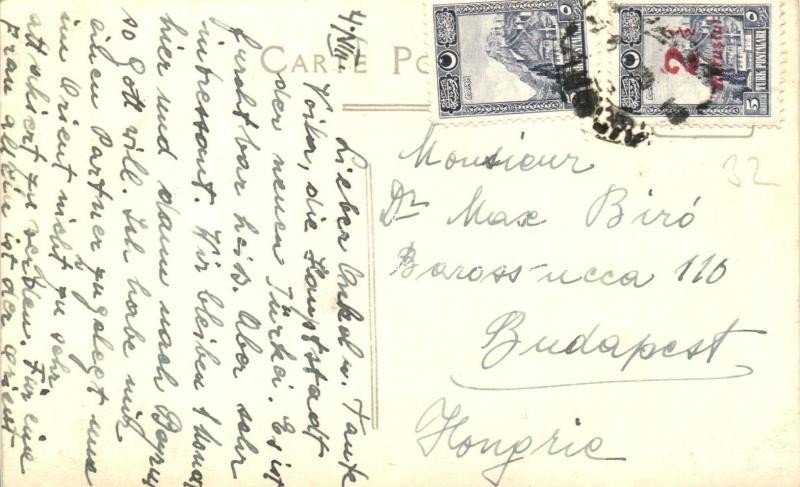 CARTE PO
4. VIII.
Lieber Onkel u. Tante
Voila, die Hauptstadt
der neuen Türkei. Es ist
furchtbar heiß. Aber sehr
intressant. Wir bleiben 1 Monat
hier und dann nach
so Gott will. Ich habe mir
einen Partner zugelegt um
im Orient nicht zu sehr
zu werden. Für eine
Frau allein ist der Orient
Monsieur
Dr Max Biró
Baross-ucca 110
Budapest
Hongrie
32
5
2 ½
5
TÜRK POSTALARI